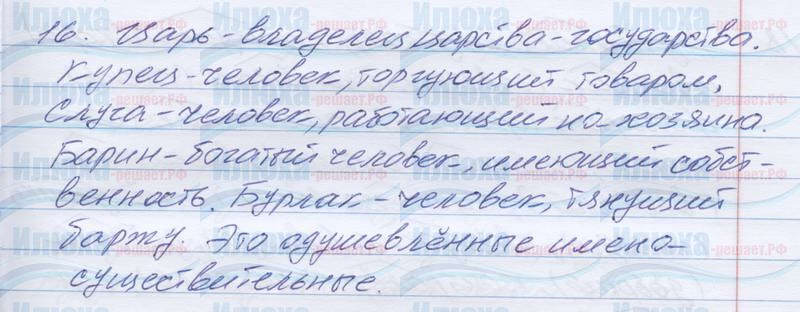 16. Царь - владелец царства - государства.
Купец - человек, торгующий товаром,
Слуга - человек, работающий на хозяина.
Барин - богатый человек, имеющий собст-
венность. Бурлак - человек, тянущий
баржу. Это одушевлённые имена
существительные.